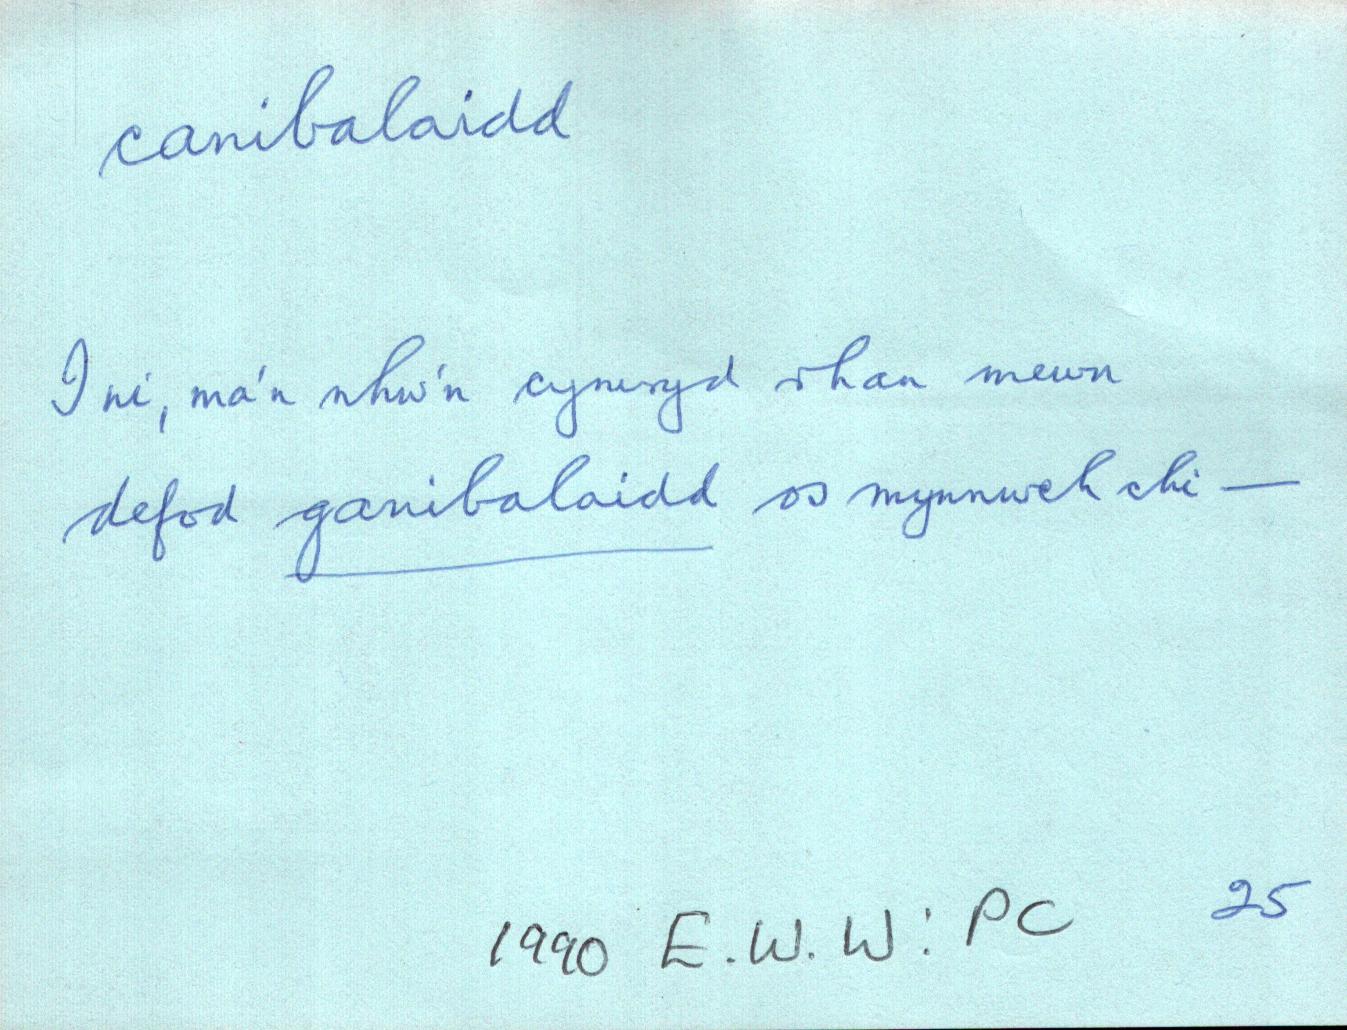 canibalaidd
I ni, ma'n nhw'n cymryd rhan mewn
defod ganibalaidd os mynnwch chi —
1990 E.W.W: PC 25